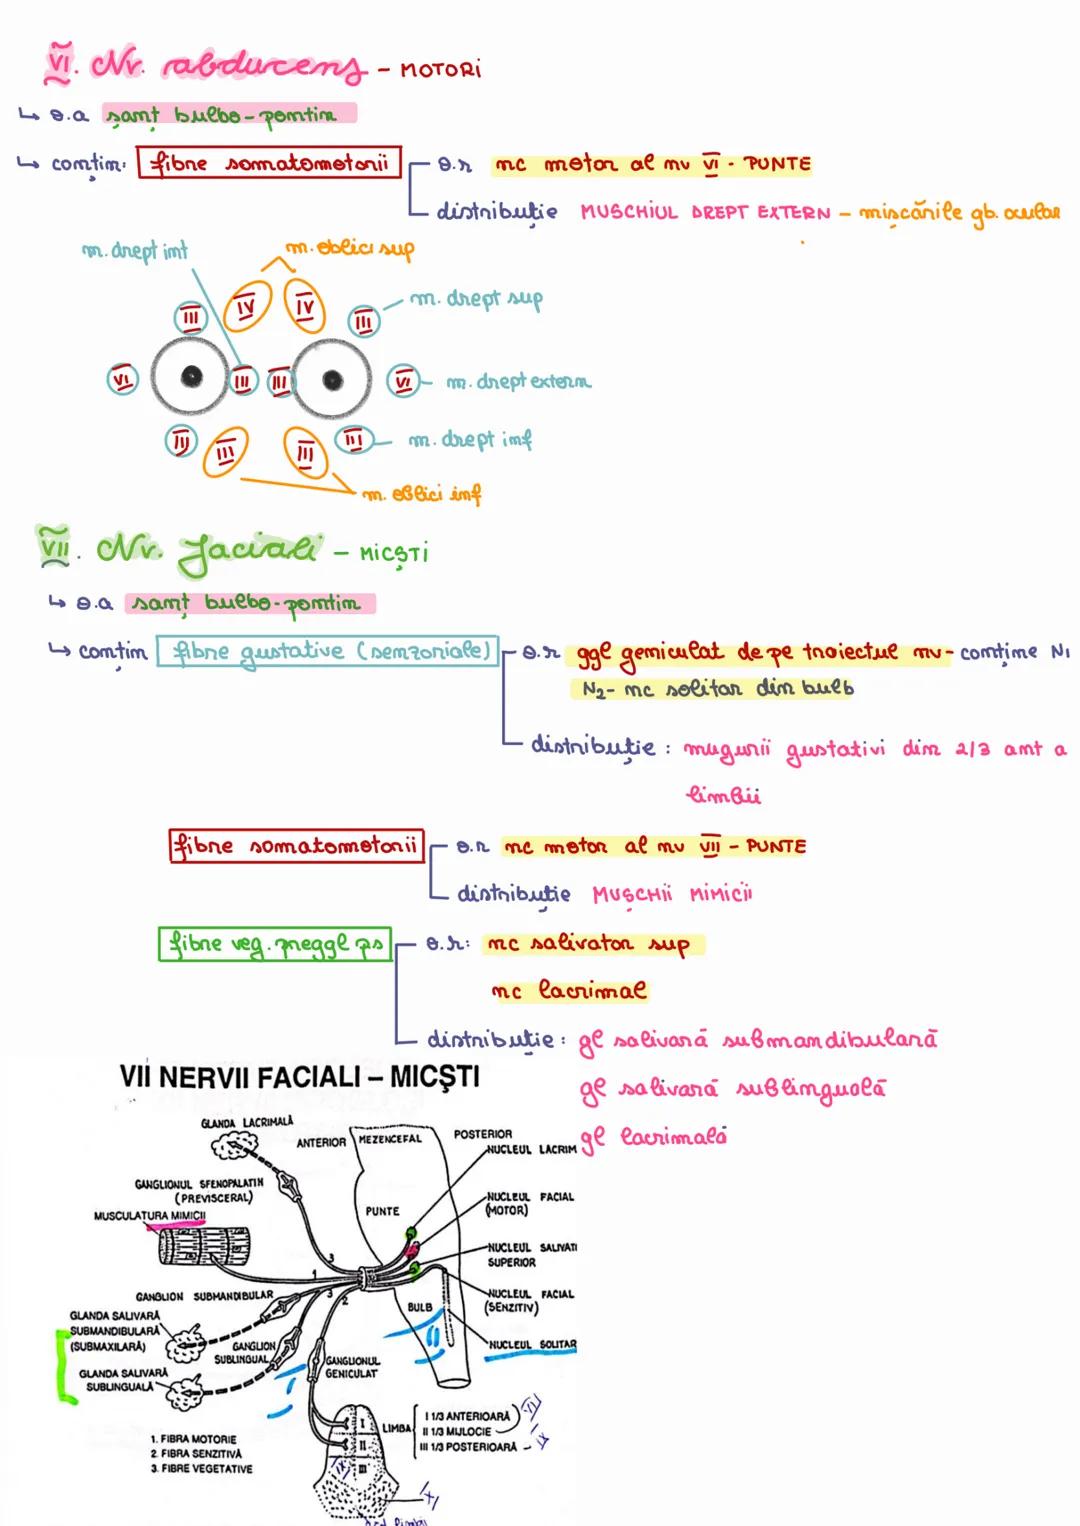 VI. Nv. abducens - MOTORI
↳ o.a șanț bulbo-pontin
↳ conțin: fibre somatomotorii
o.r nc motor al nv VI - PUNTE
distribuție MUSCHIUL DREPT EXTERN - mișcările gb. ocular
m. drept int
m. oblici sup
m. drept sup
III IV IV III
VI III III VI
m. drept extern
III III III III
m. drept inf
m. oblici inf
VII. Nv. faciali - MICȘTI
↳ o.a sanț bulbo-pontin
↳ conțin fibre gustative (senzoriale)
o.r ggl geniculat de pe traiectul nv- conține N1
N2- nc solitar din bulb
distribuție: mugurii gustativi din 2/3 ant a
limbii
fibre somatomotorii
o.r nc motor al nv VII - PUNTE
distribuție MUȘCHII MIMICII
fibre veg. preggl ps
o.r: nc salivator sup
nc lacrimal
distribuție: gl salivară submandibulară
gl salivară sublinguală
gl lacrimală
VII NERVII FACIALI – MICȘTI
GLANDA LACRIMALĂ
ANTERIOR
MEZENCEFAL
POSTERIOR
NUCLEUL LACRIM
GANGLIONUL SFENOPALATIN
(PREVISCERAL)
MUSCULATURA MIMICII
PUNTE
NUCLEUL FACIAL
(MOTOR)
NUCLEUL SALIVATI
SUPERIOR
3
1
3
2
GANGLION SUBMANDIBULAR
NUCLEUL FACIAL
(SENZITIV)
BULB
GLANDA SALIVARĂ
SUBMANDIBULARĂ
(SUBMAXILARĂ)
GANGLION
SUBLINGUAL
II
NUCLEUL SOLITAR
GANGLIONUL
GENICULAT
GLANDA SALIVARĂ
SUBLINGUALĂ
I
I
LIMBA
I 1/3 ANTERIOARĂ
II 1/3 MIJLOCIE
III 1/3 POSTERIOARĂ - IX
VII
II
III
IX
1. FIBRA MOTORIE
2. FIBRA SENZITIVĂ
3. FIBRE VEGETATIVE